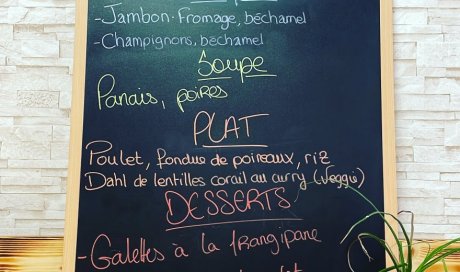 - Jambon-Fromage, béchamel
- Champignons, béchamel
Soupe
Panais, poires
PLAT
Poulet, fondue de poireaux, riz
Dahl de lentilles corail au curry (Veggie)
DESSERTS
- Galettes à la frangipane